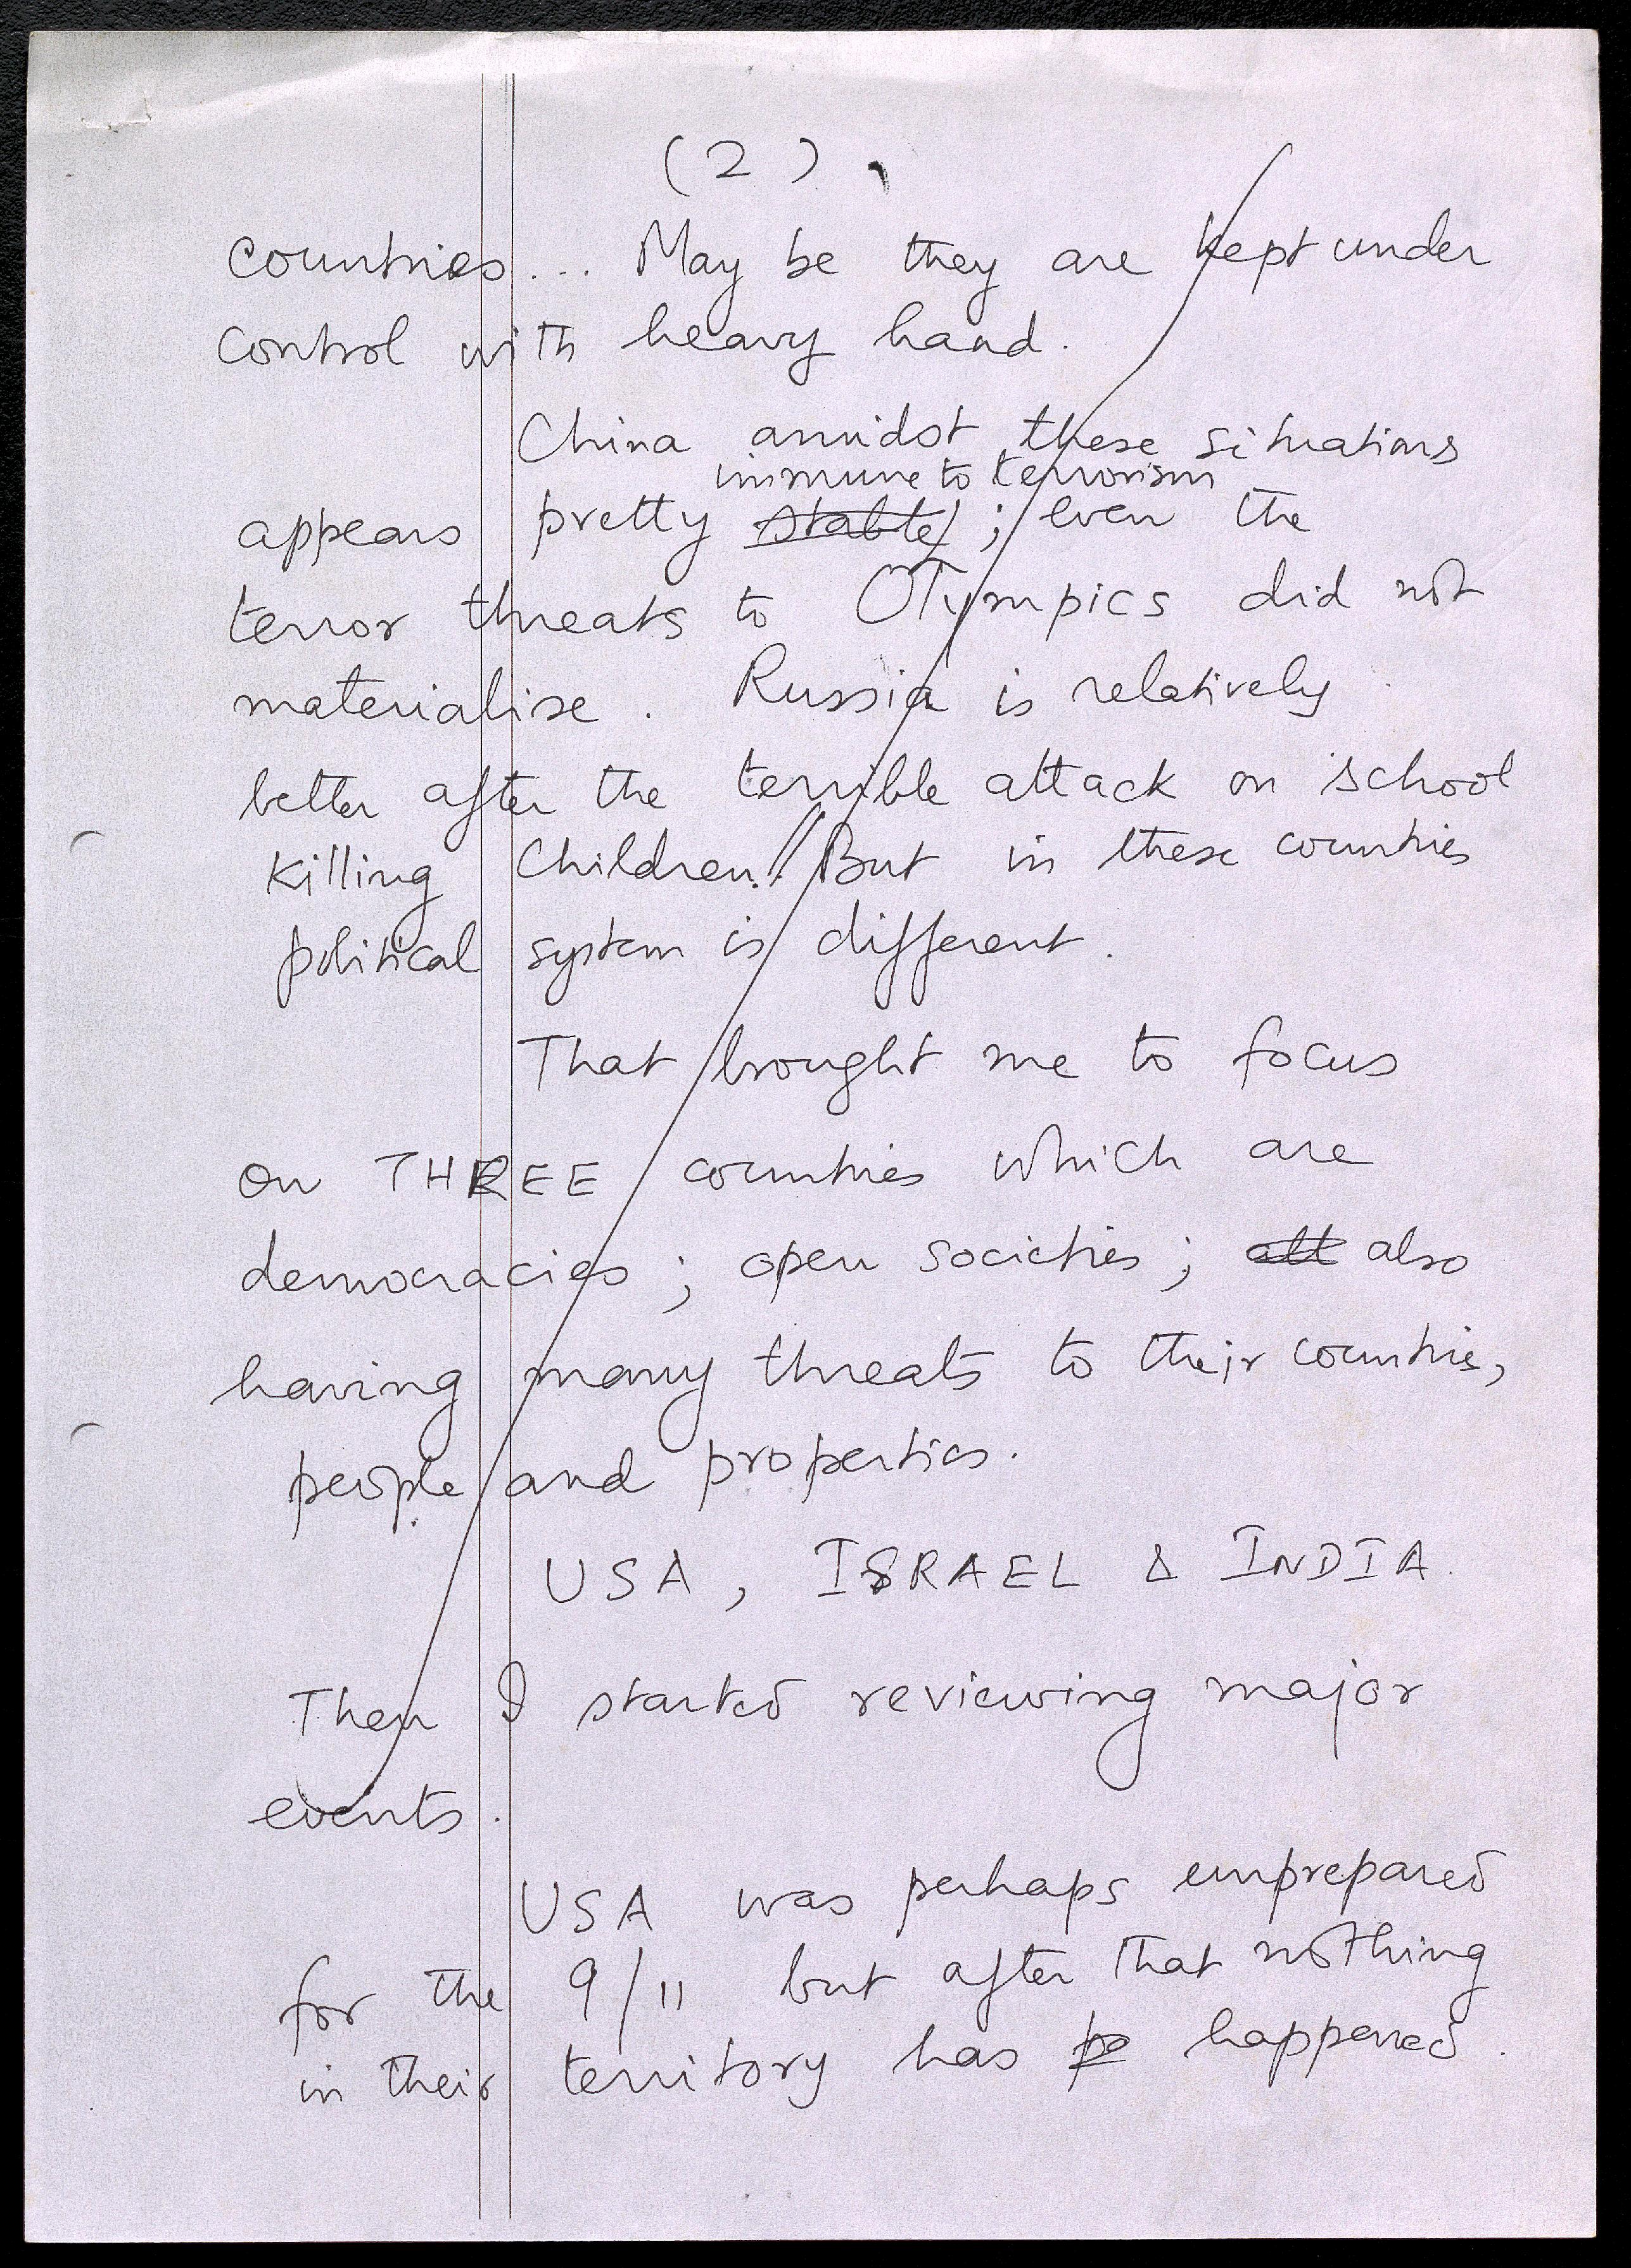 (2)
countries... May be they are kept under
control with heavy hand.
China amidst these situations
immune to terrorism
appears pretty stable; even the
terror threats to Olympics did not
materialise. Russia is relatively
better after the terrible attack on school
killing Children!! But in these countries
political system is different.
That brought me to focus
on THREE countries which are
democracies; open societies; all also
having many threats to their countries,
people and properties.
USA, ISRAEL & INDIA.
Then I started reviewing major
events.
USA was perhaps unprepared
for the 9/11 but after that nothing
in their territory has happened.